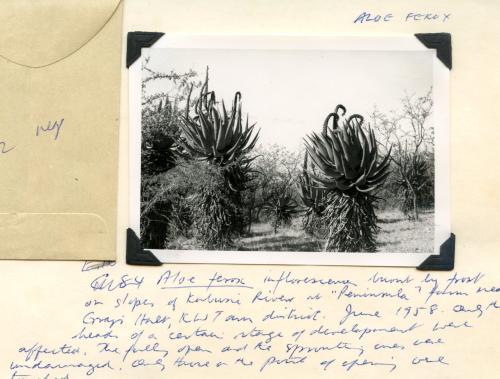 ALOE FEROX
2 neg
GU84 Aloe ferox inflorescence burnt by frost
on slopes of Kabusi River at "Peninsula" farm near
Halt, KWT own district. June 1958. Only
heads of a certain stage of development were
affected. The fully open and the sprouting ones were
undamaged. Only those on the point of opening were